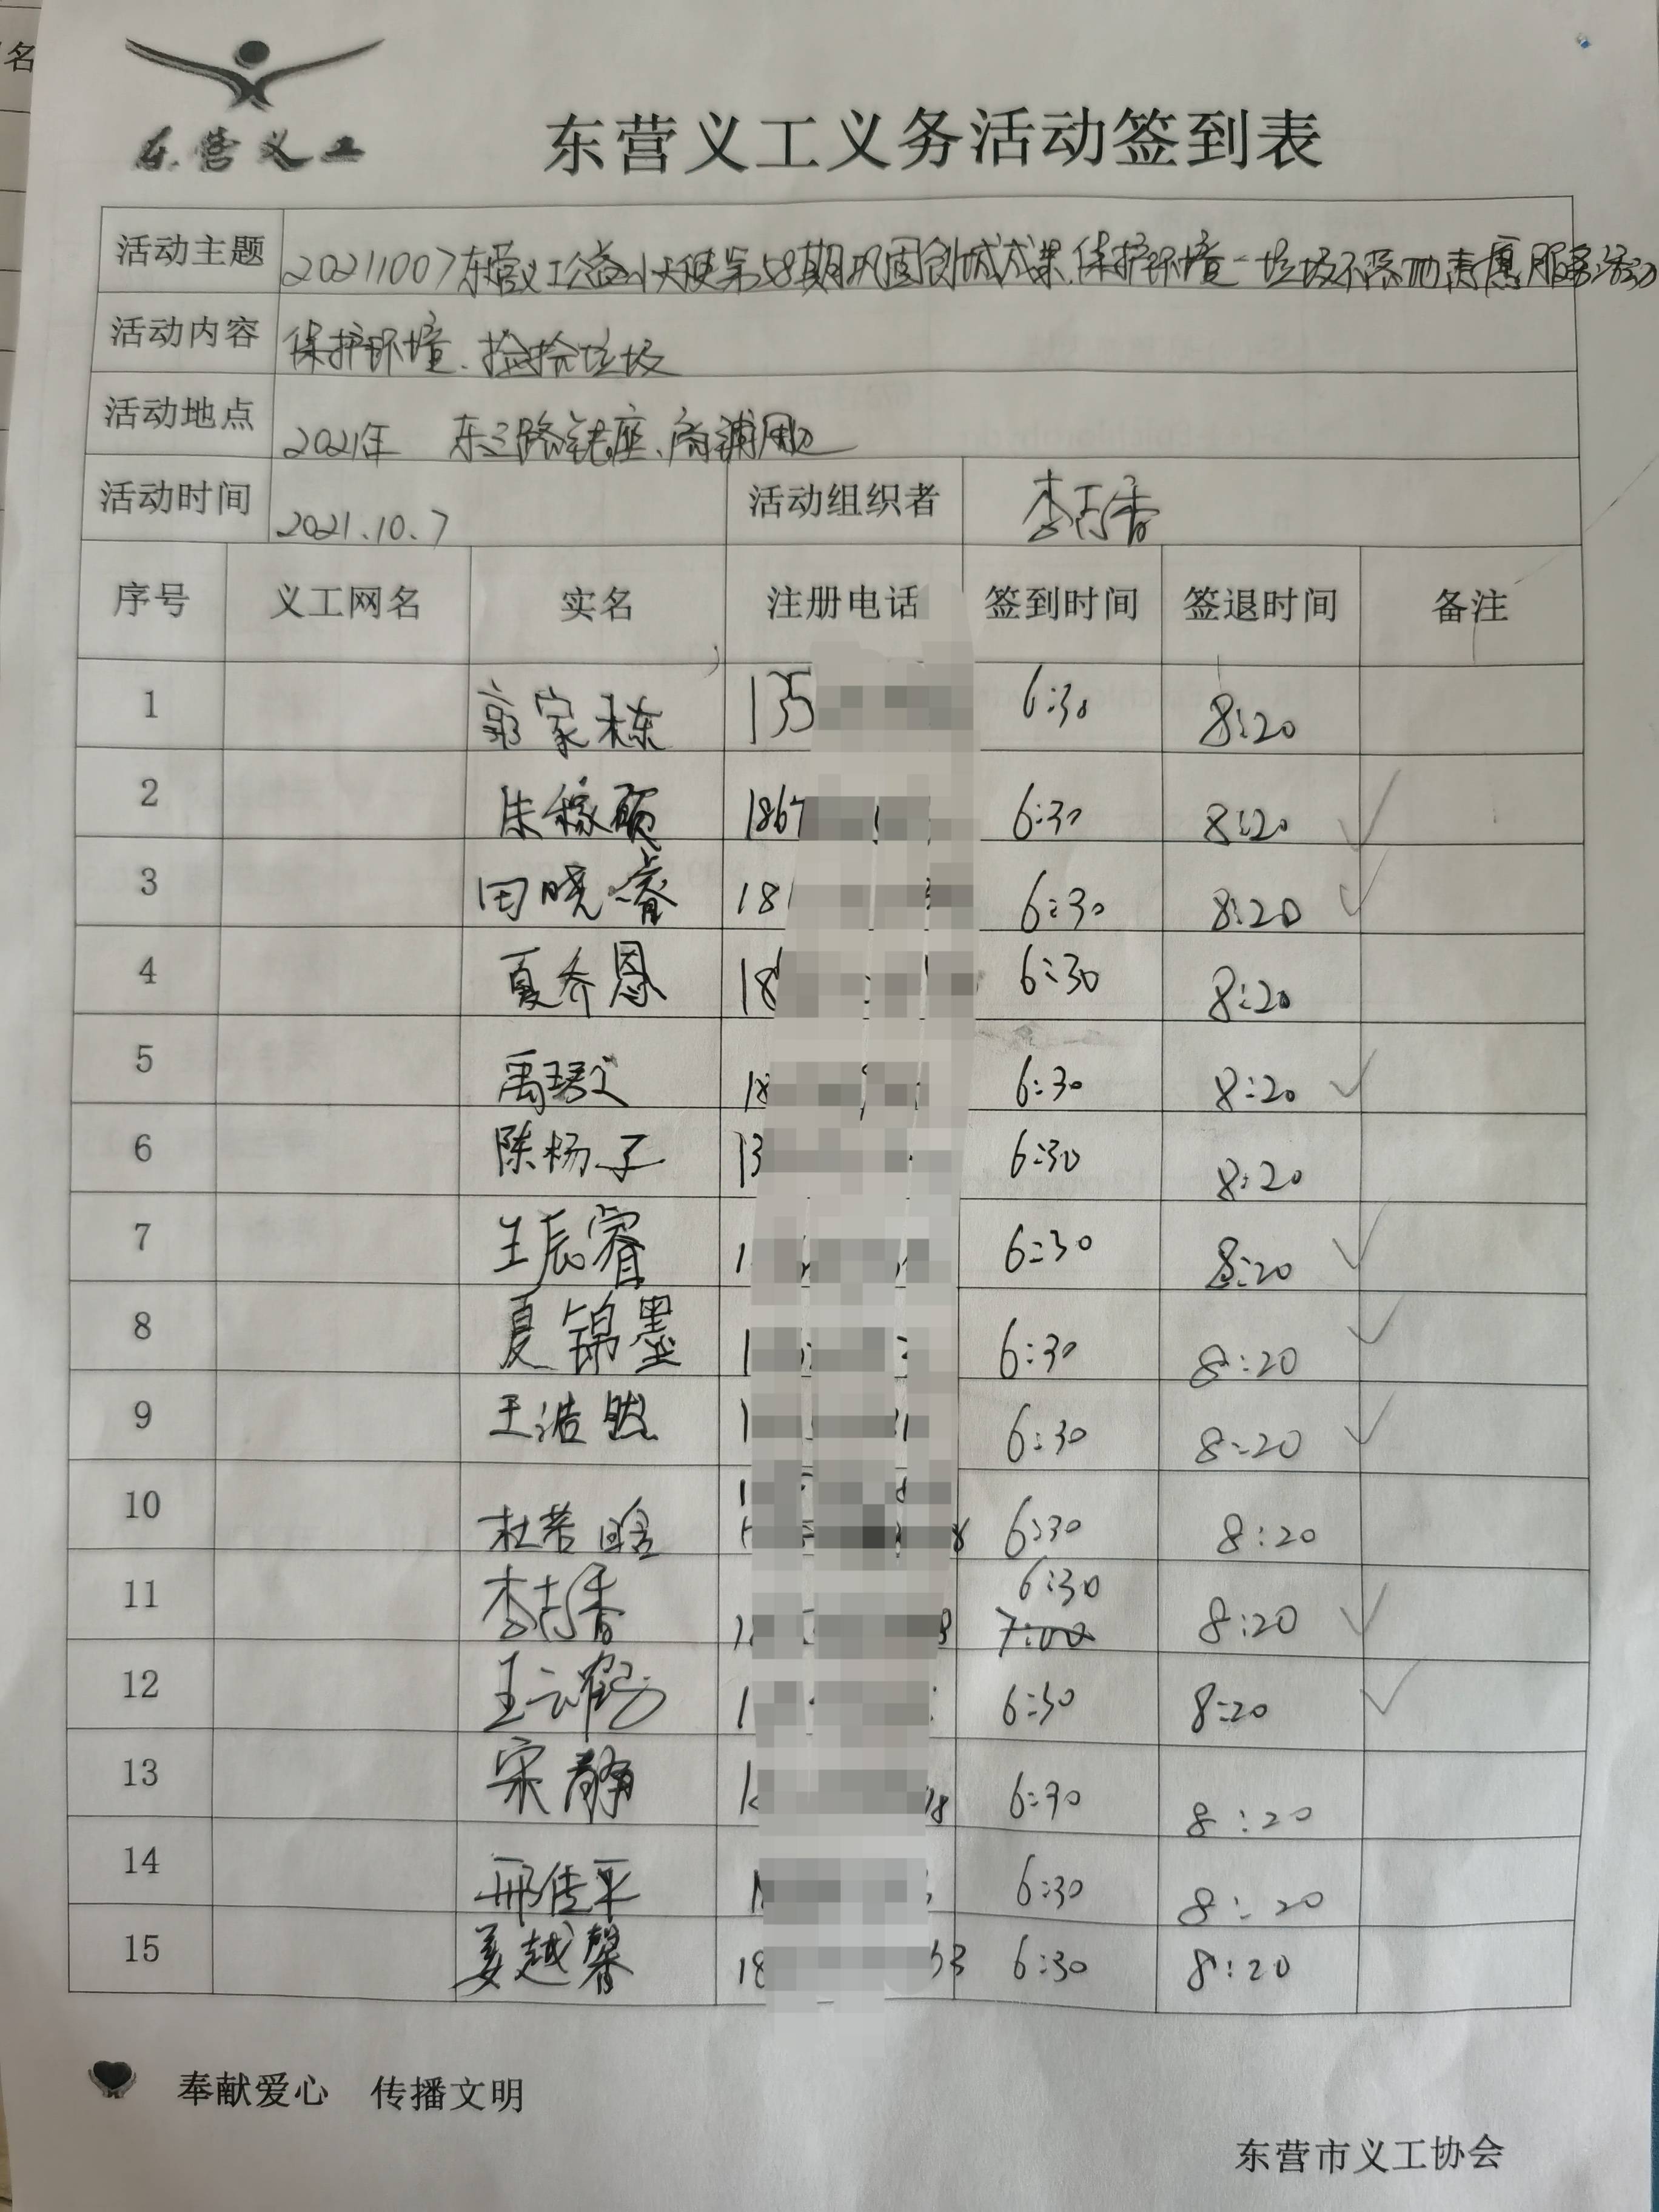 名
东营义工
东营义工义务活动签到表
活动主题 20211007东营义工公益小天使第58期巩固创城成果.保护环境-垃圾不落地志愿服务活动
活动内容 保护环境.捡拾垃圾
活动地点 2021年 东三路银座.商铺周边
活动时间 2021.10.7 活动组织者 李志香
序号 义工网名 实名 注册电话 签到时间 签退时间 备注
1 郭家栋 135 6:30 8:20
2 朱稼硕 1867 6:30 8:20 ✓
3 田晓睿 181 6:30 8:20 ✓
4 夏乔恩 18 6:30 8:20
5 禹珺文 18 6:30 8:20 ✓
6 陈杨子 13 6:30 8:20
7 王辰睿 1 6:30 8:20 ✓
8 夏锦墨 1 6:30 8:20 ✓
9 王浩然 1 6:30 8:20 ✓
10 杜若晗 6:30 8:20
6:30
11 李志香 7:00 8:20 ✓
12 王云鹤 1 6:30 8:20 ✓
13 宋静 6:30 8:20
14 邢佳平 6:30 8:20
15 姜越馨 18 53 6:30 8:20
奉献爱心 传播文明
东营市义工协会